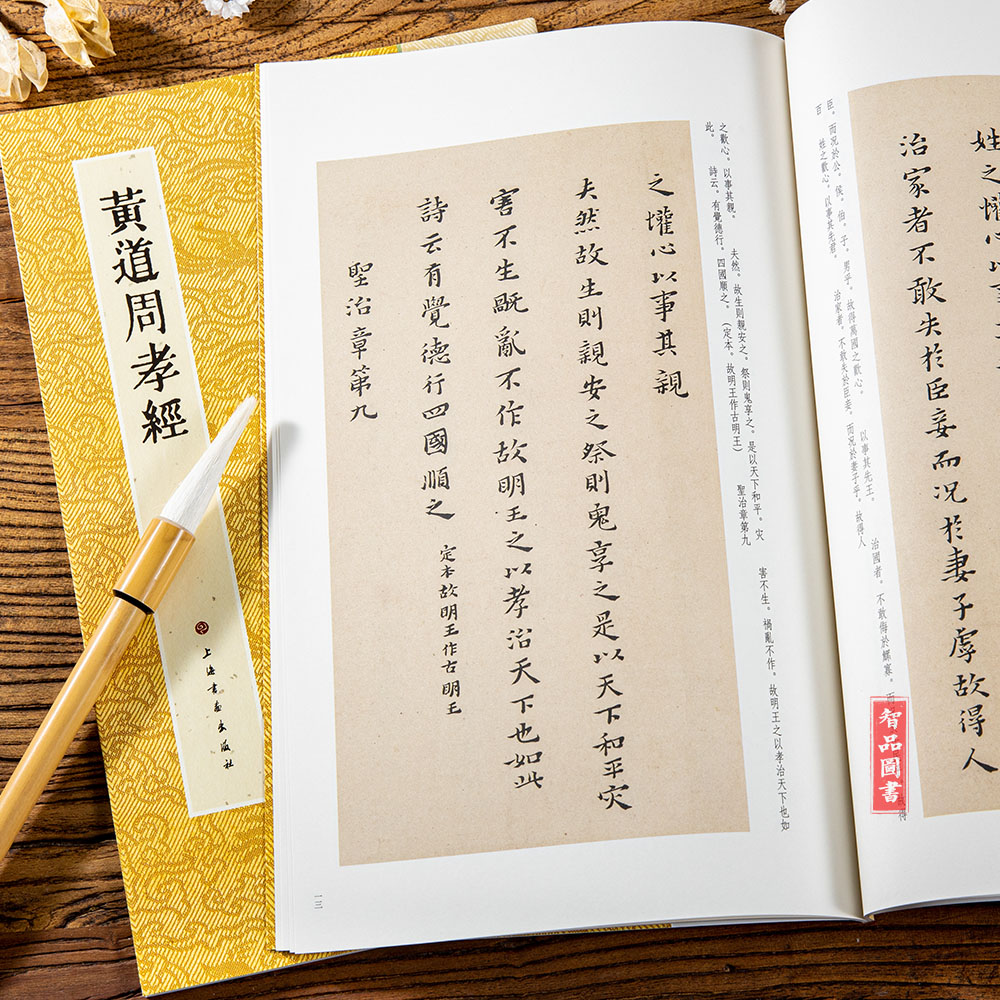 黃道周孝經
上海書畫出版社
姓之懽心以事
治家者不敢失於臣妾而況於妻子虖故得人
臣。而況於公。侯。伯。子。男乎。故得萬國之歡心。以事其先王。 治國者。不敢侮於鰥寡。而
故得
百 姓之歡心。以事其先君。 治家者。不敢失於臣妾。而況於妻子乎。故得人
智品圖書
之歡心。以事其親。 夫然。故生則親安之。祭則鬼享之。是以天下和平。災 害不生。禍亂不作。故明王之以孝治天下也如
此。 詩云。有覺德行。四國順之。（定本。故明王作古明王） 聖治章第九
之懽心以事其親
夫然故生則親安之祭則鬼享之是以天下和平災
害不生旤亂不作故明王之以孝治天下也如此
詩云有覺德行四國順之 定本故明王作古明王
聖治章第九
一三